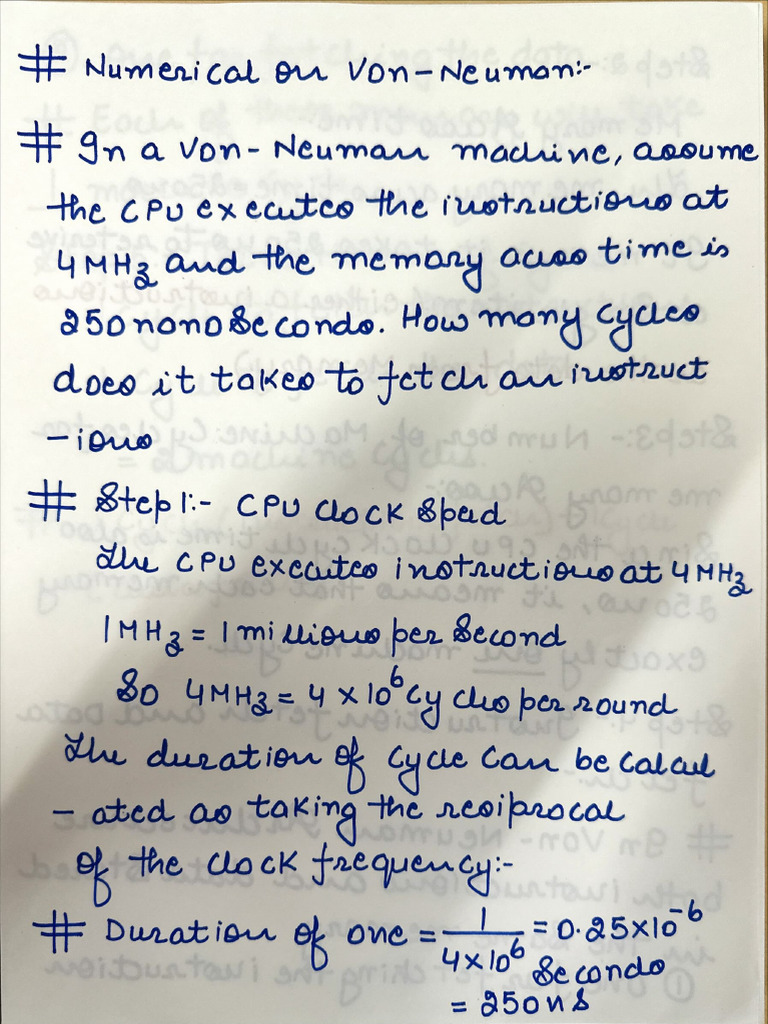 # Numerical on Von-Neuman:-
# In a Von-Neuman machine, assume
the CPU executes the instructions at
4MHz and the memory access time is
250 nonoseconds. How many cycles
does it takes to fetch an instruct
-ions
# Step 1:- CPU clock Speed
The CPU executes instructions at 4MHz
1MHz = 1 millions per second
So 4MHz = 4 × 10⁶ cycles per round
The duration of cycle can be calcul
- ated as taking the reciprocal
of the clock frequency:-
# Duration of one = 1/4×10⁶ = 0.25×10⁻⁶
Seconds
= 250ns